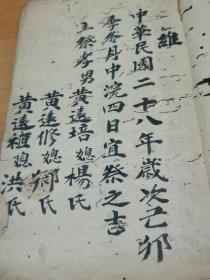 維
中華民國二十八年歲次己卯
季冬月中浣四日宜祭之吉
主祭孝男黃遠培媳楊氏
黃遠修媳鄭氏
黃遠植媳洪氏